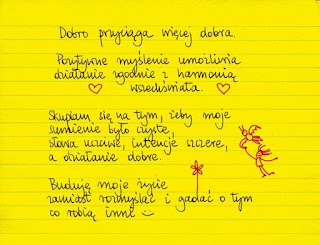 Dobro przyciąga więcej dobra.
Pozytywne myślenie umożliwia
działanie zgodnie z harmonią
wszechświata.
Skupiam się na tym, żeby moje
sumienie było czyste,
słowa uczciwe, intencje szczere,
a działanie dobre.
Buduję moje życie
zamiast rozmyślać i gadać o tym
co robią inni